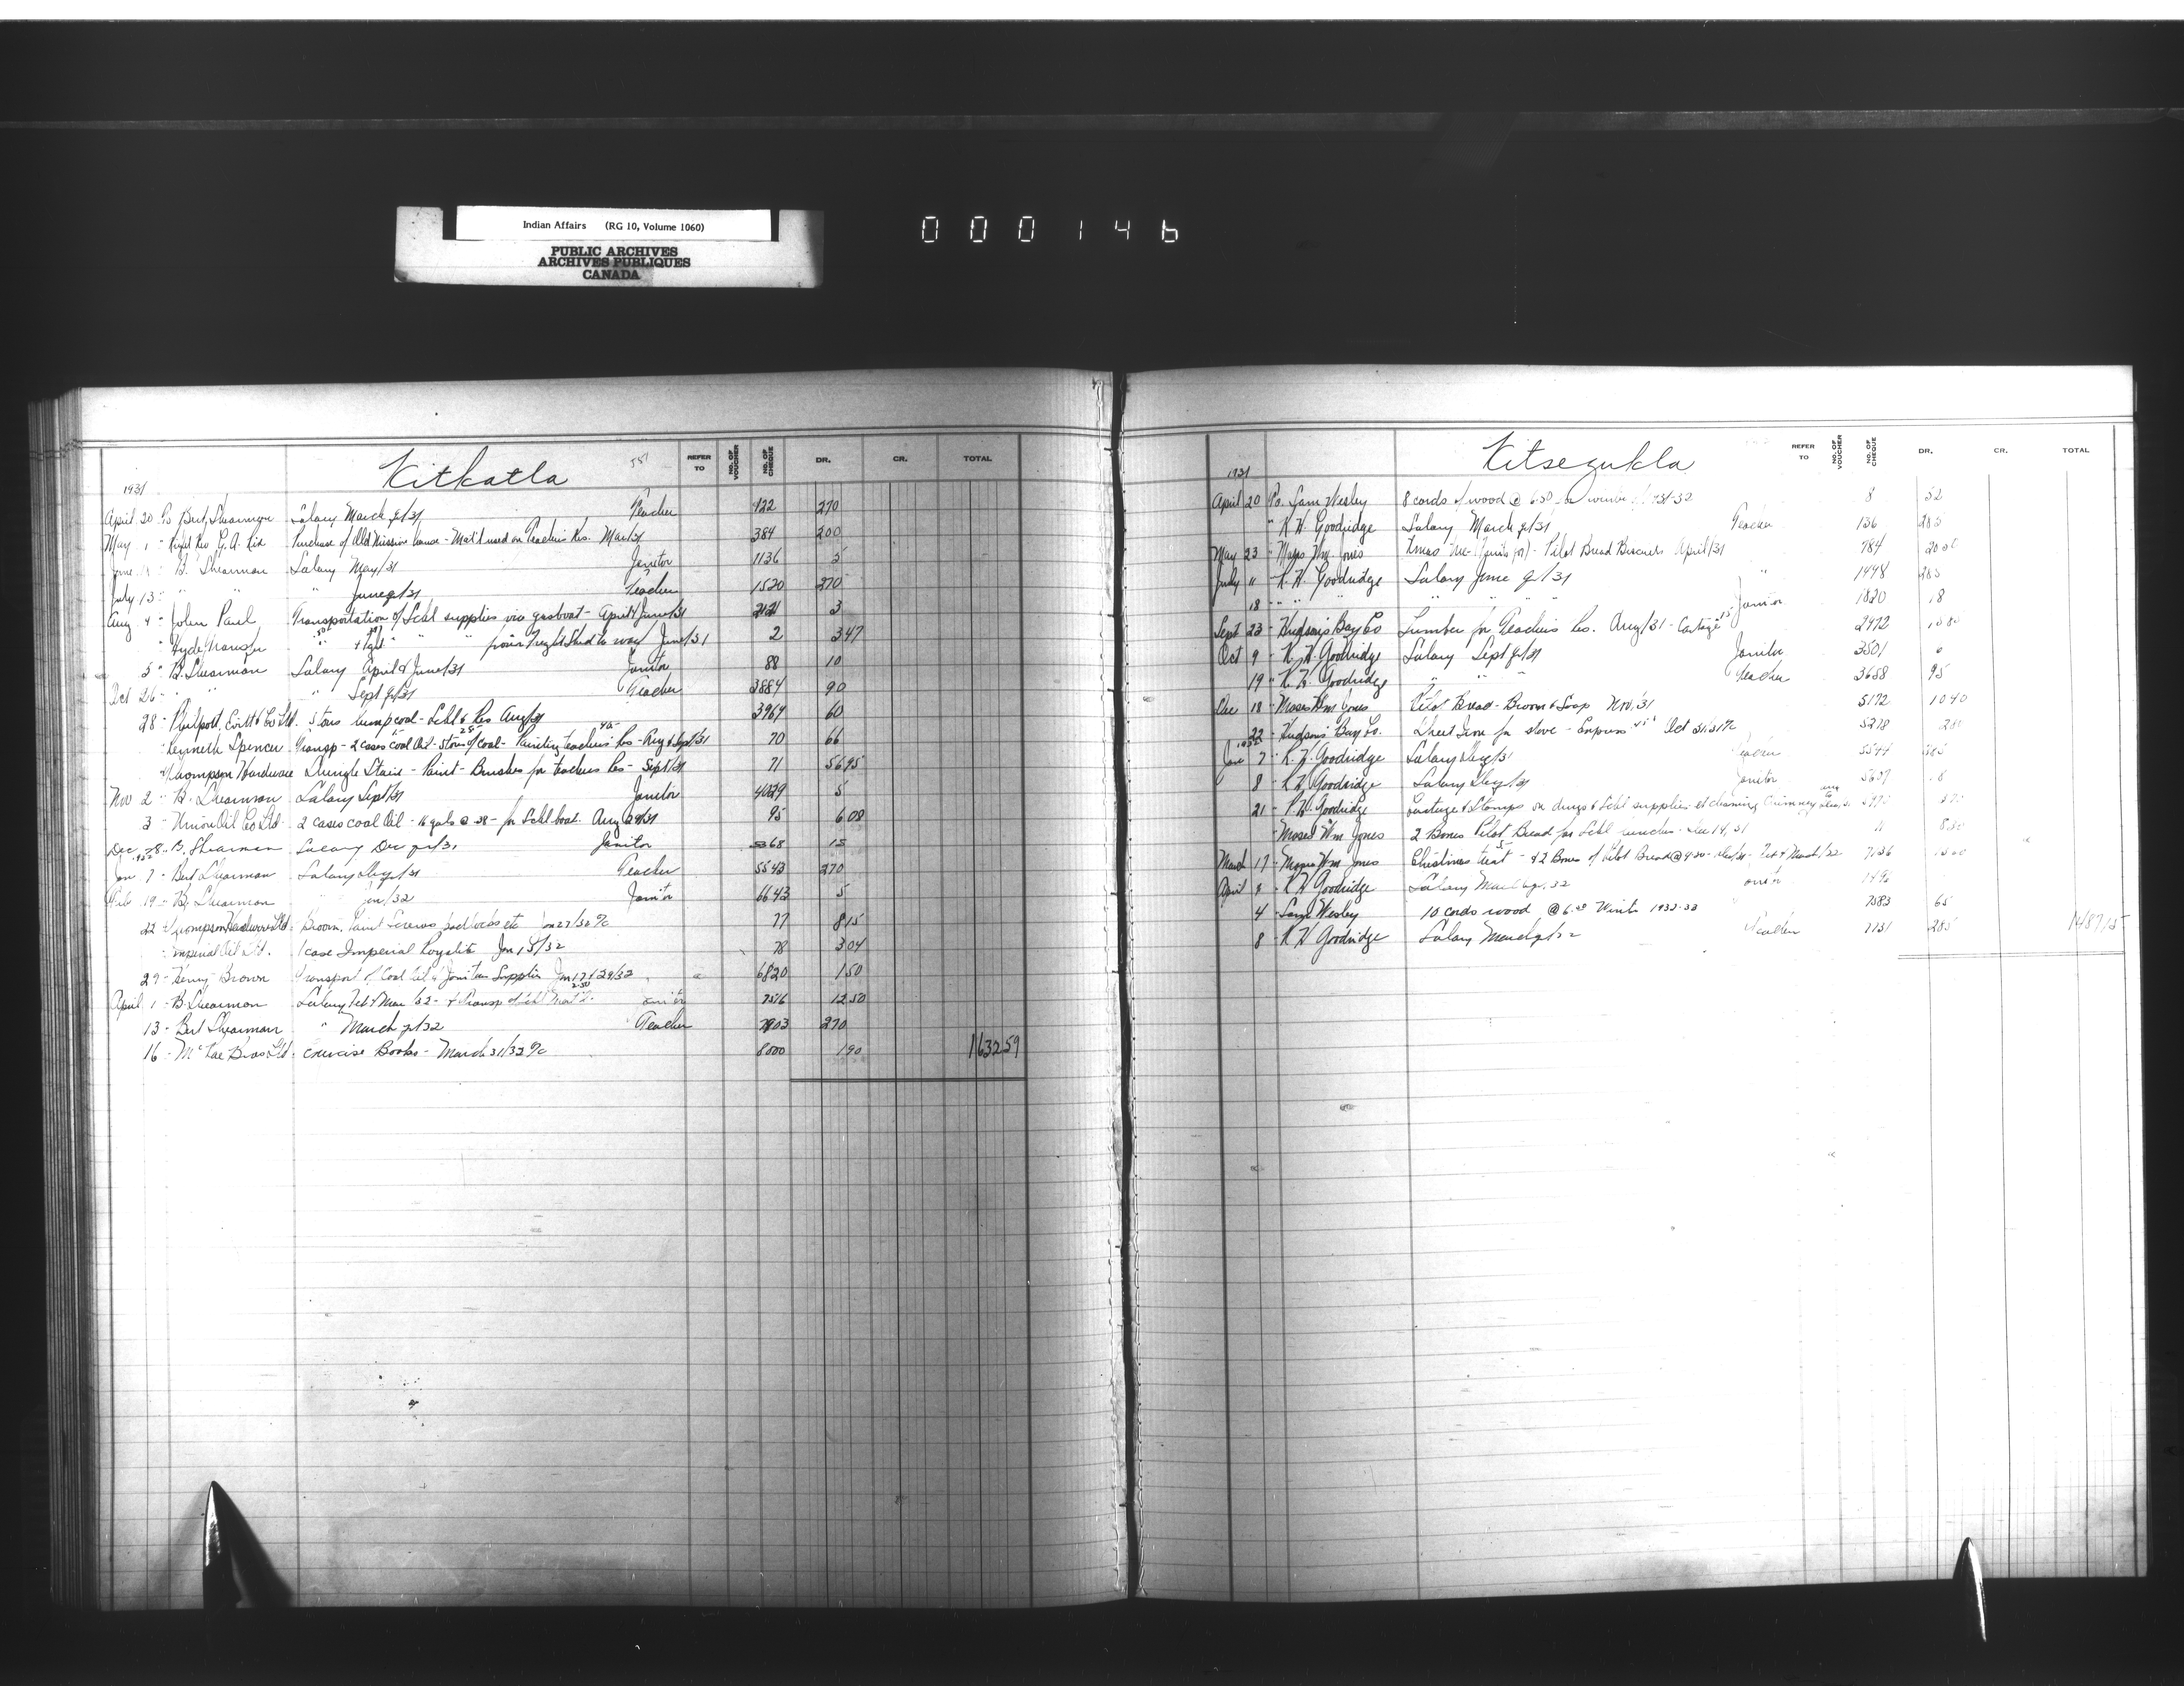 Indian Affairs (RG 10, Volume 1060)
PUBLIC ARCHIVES
ARCHIVES PUBLIQUES
CANADA
000146
Kitkatla
REFER TO NO. OF VOUCHER NO. OF CHEQUE DR. CR. TOTAL
1931
April 20 To Bert Shearman Salary March qr/31 Teacher 122 270
May 1 " Right Rev G. A. Rix Purchase of Old Mission house - Mat'l used on Teachers Res. Mar/31 384 200
June " B. Shearman Salary May/31 Janitor 1136 5
July 13 " " " June qr/31 Teacher 1520 270
Aug 4 " John Paul Transportation of Schl supplies via gasboat - April & June/31 2121 3
" Hyde Transfer " & hgt " " from Freight Shed to wharf June/31 2 347
5 " B. Shearman Salary April & June/31 Janitor 88 10
Oct 26 " " " Sept qr/31 Teacher 3884 90
28 " Philpott, Evitt & Co Ltd. 5 tons lump coal - Schl & Res Aug/31 3969 60
Kenneth Spencer Transp - 2 cases Coal Oil - 5 tons of Coal - Painting teachers Res - Aug & Sept/31 70 66
Thompson Hardware Shingle Stain - Paint - Brushes for teachers Res - Sept/31 71 5695
Nov 2 " B. Shearman Salary Sept/31 Janitor 4029 5
3 " Union Oil Co Ltd 2 cases coal Oil - 16 gals @ .38 - for Schl boat. Aug 29/31 95 608
Dec 28 " B. Shearman Salary Dec qr/31 Janitor 5368 15
1932
Jan 7 " Bert Shearman Salary Dec qr/31 Teacher 5543 270
Feb 19 " B. Shearman " Jan/32 Janitor 6643 5
22 " Thompson Hardware Ltd. Broom, Paint Screws padlocks etc Jan 27/32 a/c 77 815
" Imperial Oil Ltd. 1 case Imperial Royalite Jan 15/32 78 304
29 " Henry Brown Transport of Coal Oil & Janitors Supplies Jan 17 & 29/32 6820 150
April 1 " B Shearman Salary Feb & Mar/32 - & Transp of Schl Mat'l 2.50 Janitor 7516 1250
13 " Bert Shearman " March qr/32 Teacher 7903 270
16 " McRae Bros Ltd. Exercise Books - March 31/32 a/c 8000 190 163259
Kitsegukla
REFER TO NO. OF VOUCHER NO. OF CHEQUE DR. CR. TOTAL
1931
April 20 To Sam Wesley 8 cords of wood @ 6.50 for winter of 1931-32 8 52
" K. W. Goodridge Salary March qr/31 Teacher 136 285
May 23 " Moses Wm. Jones Pilot Bread Biscuits April/31 784 2020
July 11 " K. W. Goodridge Salary June qr/31 " 1498 285
18 " " " " " Janitor 1820 18
Sept 23 " Hudson's Bay Co Lumber for Teachers Res. Aug/31 - Cartage 2972
Oct 9 " K. W. Goodridge Salary Sept qr/31 Janitor 3501 6
19 " K. W. Goodridge " " " Teacher 3658 95
Dec 18 " Moses Wm Jones Pilot Bread - Broom & Soap Nov/31 5172 1040
22 " Hudson's Bay Co. Sheet Iron for stove - Express Oct 31/31 a/c 5278 280
1932
Jan 7 " K. W. Goodridge Salary Dec qr/31 Teacher 5544 285
8 " K W Goodridge Salary Dec qr/31 Janitor 5607 18
21 " K W Goodridge Cartage & Stamps on drugs & Schl supplies & cleaning Chimney
" Moses Wm Jones 2 Boxes Pilot Bread for Schl lunches - Dec 14, 31
March 17 " Moses Wm Jones Christmas treat - & 2 Boxes of Pilot Bread @ 4.20 - Dec/31 - Feb & March/32 7136
April 2 " K W Goodridge Salary March qr/32 Janitor
4 " Sam Wesley 10 cords wood @ 6.50 Winter 1932-33 7583 65
8 " K W Goodridge Salary March qr/32 Teacher 285 148715